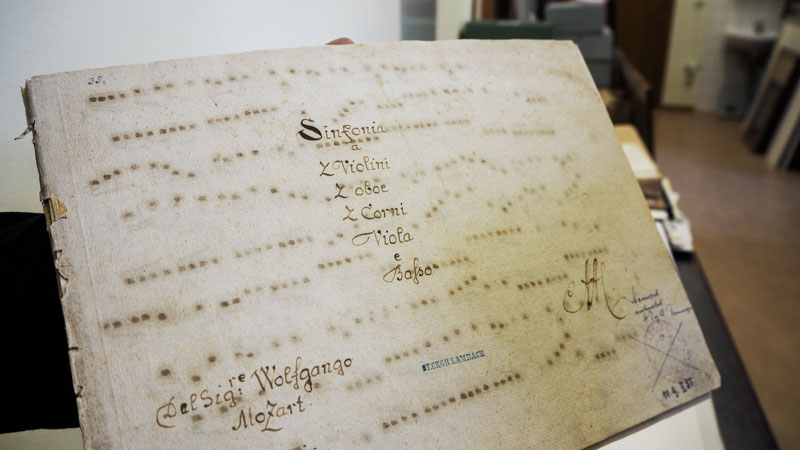 35.
Sinfonia
a
2 Violini
2 oboe
2 Corni
Viola
e
Baſso
Del Sig:re Wolfgango
Mozart